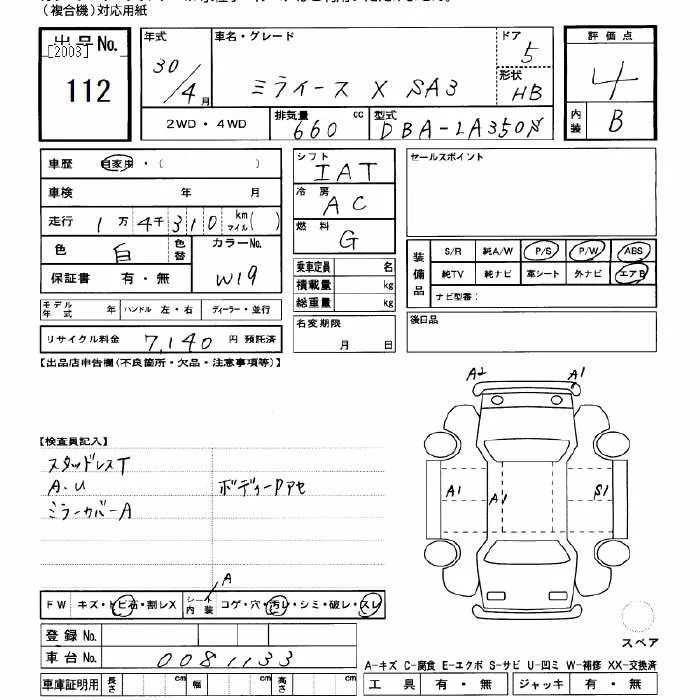 (複合機)対応用紙
出品No.
[2003]
112
年式
30/4月
車名・グレード
ミライース X SA3
ドア
5
形状
HB
評価点
4
内装
B
2WD・4WD
排気量
660
cc
型式
DBA-LA350S
車歴
自家用・( )
車検 年 月
走行 1万 4千 3 1 0 km マイル( )
色
白
色替
カラーNo.
W19
保証書 有・無
モデル年式 年
ハンドル 左・右
ディーラー・並行
リサイクル料金 7,140 円 預託済
シフト
IAT
冷房
AC
燃料
G
乗車定員 名
積載量 kg
総重量 kg
名変期限
月 日
セールスポイント
装備品
S/R 純A/W P/S P/W ABS
純TV 純ナビ 革シート 外ナビ エアB
ナビ型番:
後日品
【出品店申告欄(不良箇所・欠品・注意事項等)】
【検査員記入】
スタッドレスT
A.U
ボディーPアセ
ミラーカバーA
A2
A1
A1
A1
S1
スペア
A
FW キズ・トビ石・割レX
シート内装
コゲ・穴・汚レ・シミ・破レ・スレ
登録No.
車台No. 0081133
車庫証明用 長さ cm 幅 cm 高さ cm
A-キズ C-腐食 E-エクボ S-サビ U-凹ミ W-補修 XX-交換済
工具 有・無
ジャッキ 有・無